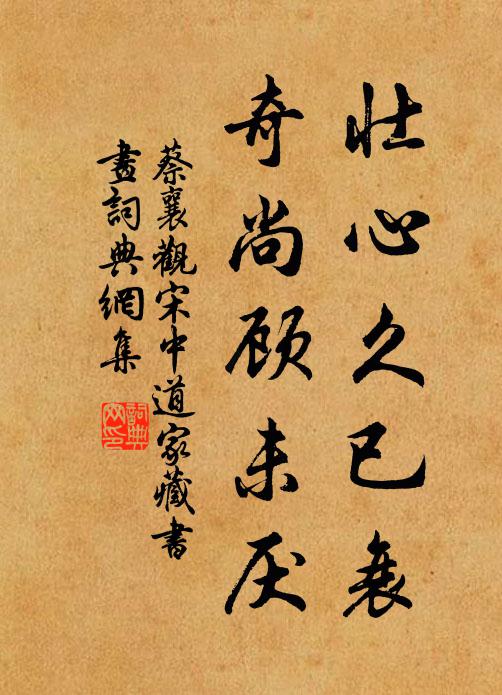 壮心久已衰
奇尚顾未厌
蔡襄觀宋中道家藏書
畫詞典網集
詞典
网印